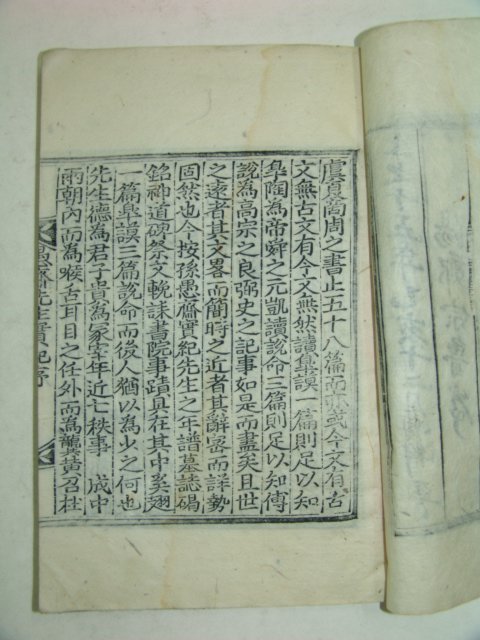 虞夏商周之書止五十八篇而亦或今文有古
文無古文有今文無然讀皐謨一篇則足以知
皐陶為帝舜之元凱讀說命三篇則足以知傅
說為高宗之良弼史之記事如是而盡矣且世
之遠者其文畧而簡時之近者其辭密而詳勢
固然也今按孫愚齋實紀先生之年譜墓誌碣
銘神道碑祭文輓誄書院事蹟具在其中奚翅
一篇皐謨三篇說命而後人猶以為少之何也
先生德為君子貴為冢宰年近七秩事 成中
兩朝內而為喉舌耳目之任外而為龔黃召杜
愚齋先生實紀序